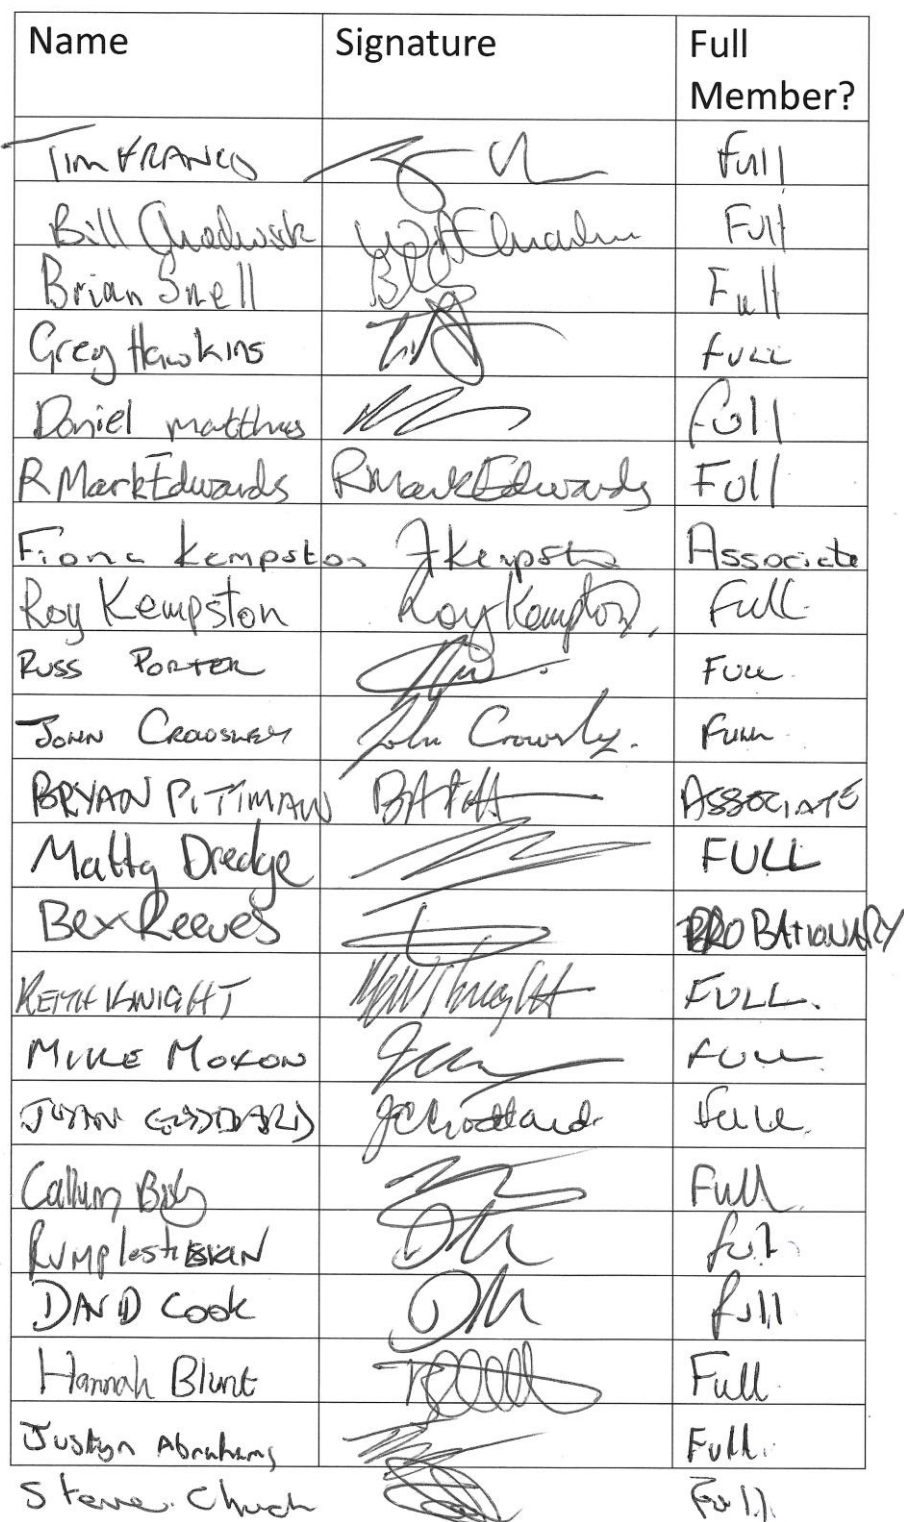 Name Signature Full Member?
TIM FRANCIS Full
Bill Chadwick Full
Brian Snell Full
Greg Hawkins FULL
Daniel matthws Full
R Mark Edwards R Mark Edwards Full
Fiona Kempston FKempston Associate
Roy Kempston Roy Kempston Full
RUSS PORTER FULL
JOHN CROWSLEY John Crowsley. FULL
BRYAN PITTMAN ASSOCIATE
Matty Dredge FULL
Bex Reeves PROBATIONARY
KEITH KNIGHT FULL.
MIKE MOXON FULL
GODDARD JCGoddard Full.
Callum Full
RUMPlestiltskin full
DAVID Cook full
Hannah Blunt Full
Justyn Abrahams Full.
Steve Church Full